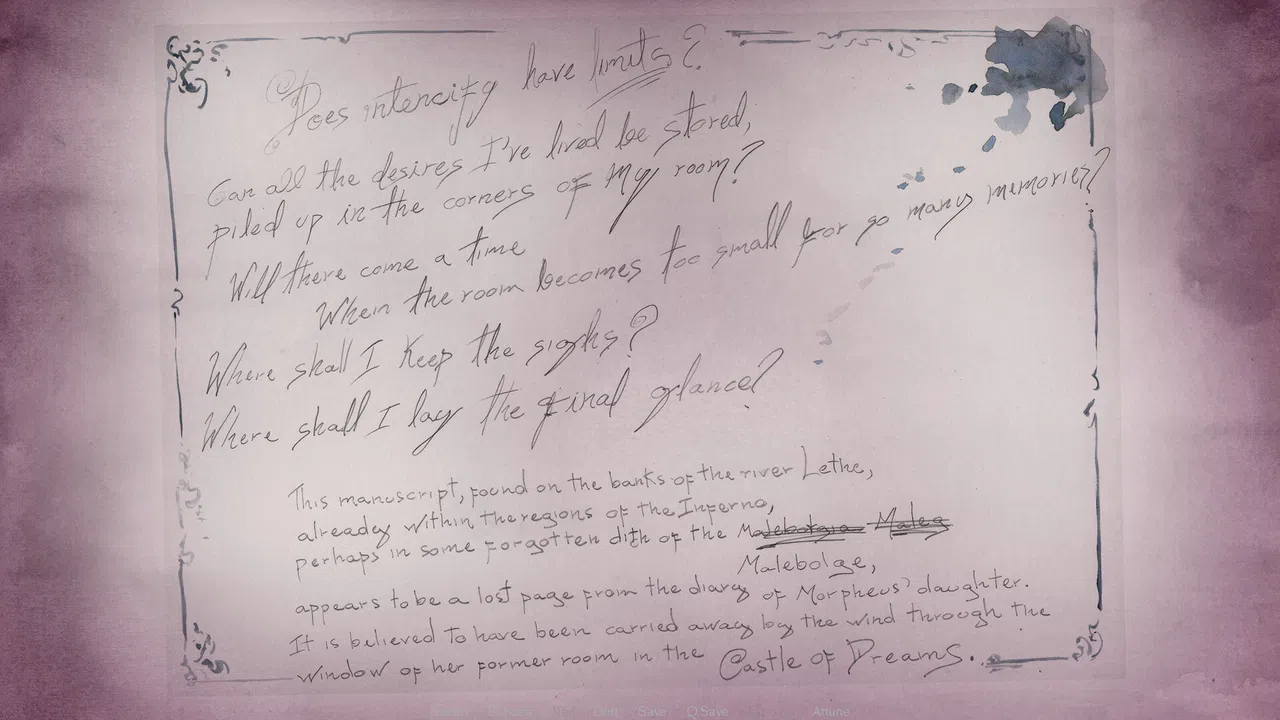 Does intencity have limits?
Can all the desires I've lived be stored,
piled up in the corners of my room?
Will there come a time
When the room becomes too small for so many memories?
Where shall I keep the sighs?
Where shall I lay the final glance?
This manuscript, found on the banks of the river Lethe,
already within the regions of the Inferno,
perhaps in some forgotten dith of the Malebolgia Maleg
Malebolge,
appears to be a lost page from the diary of Morpheus' daughter.
It is believed to have been carried away by the wind through the
window of her former room in the Castle of Dreams...
Save Q.Save Attune